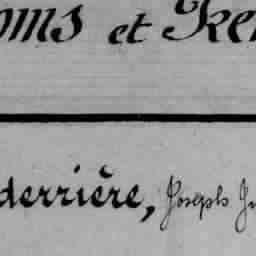 oms et
derrière, Joseph